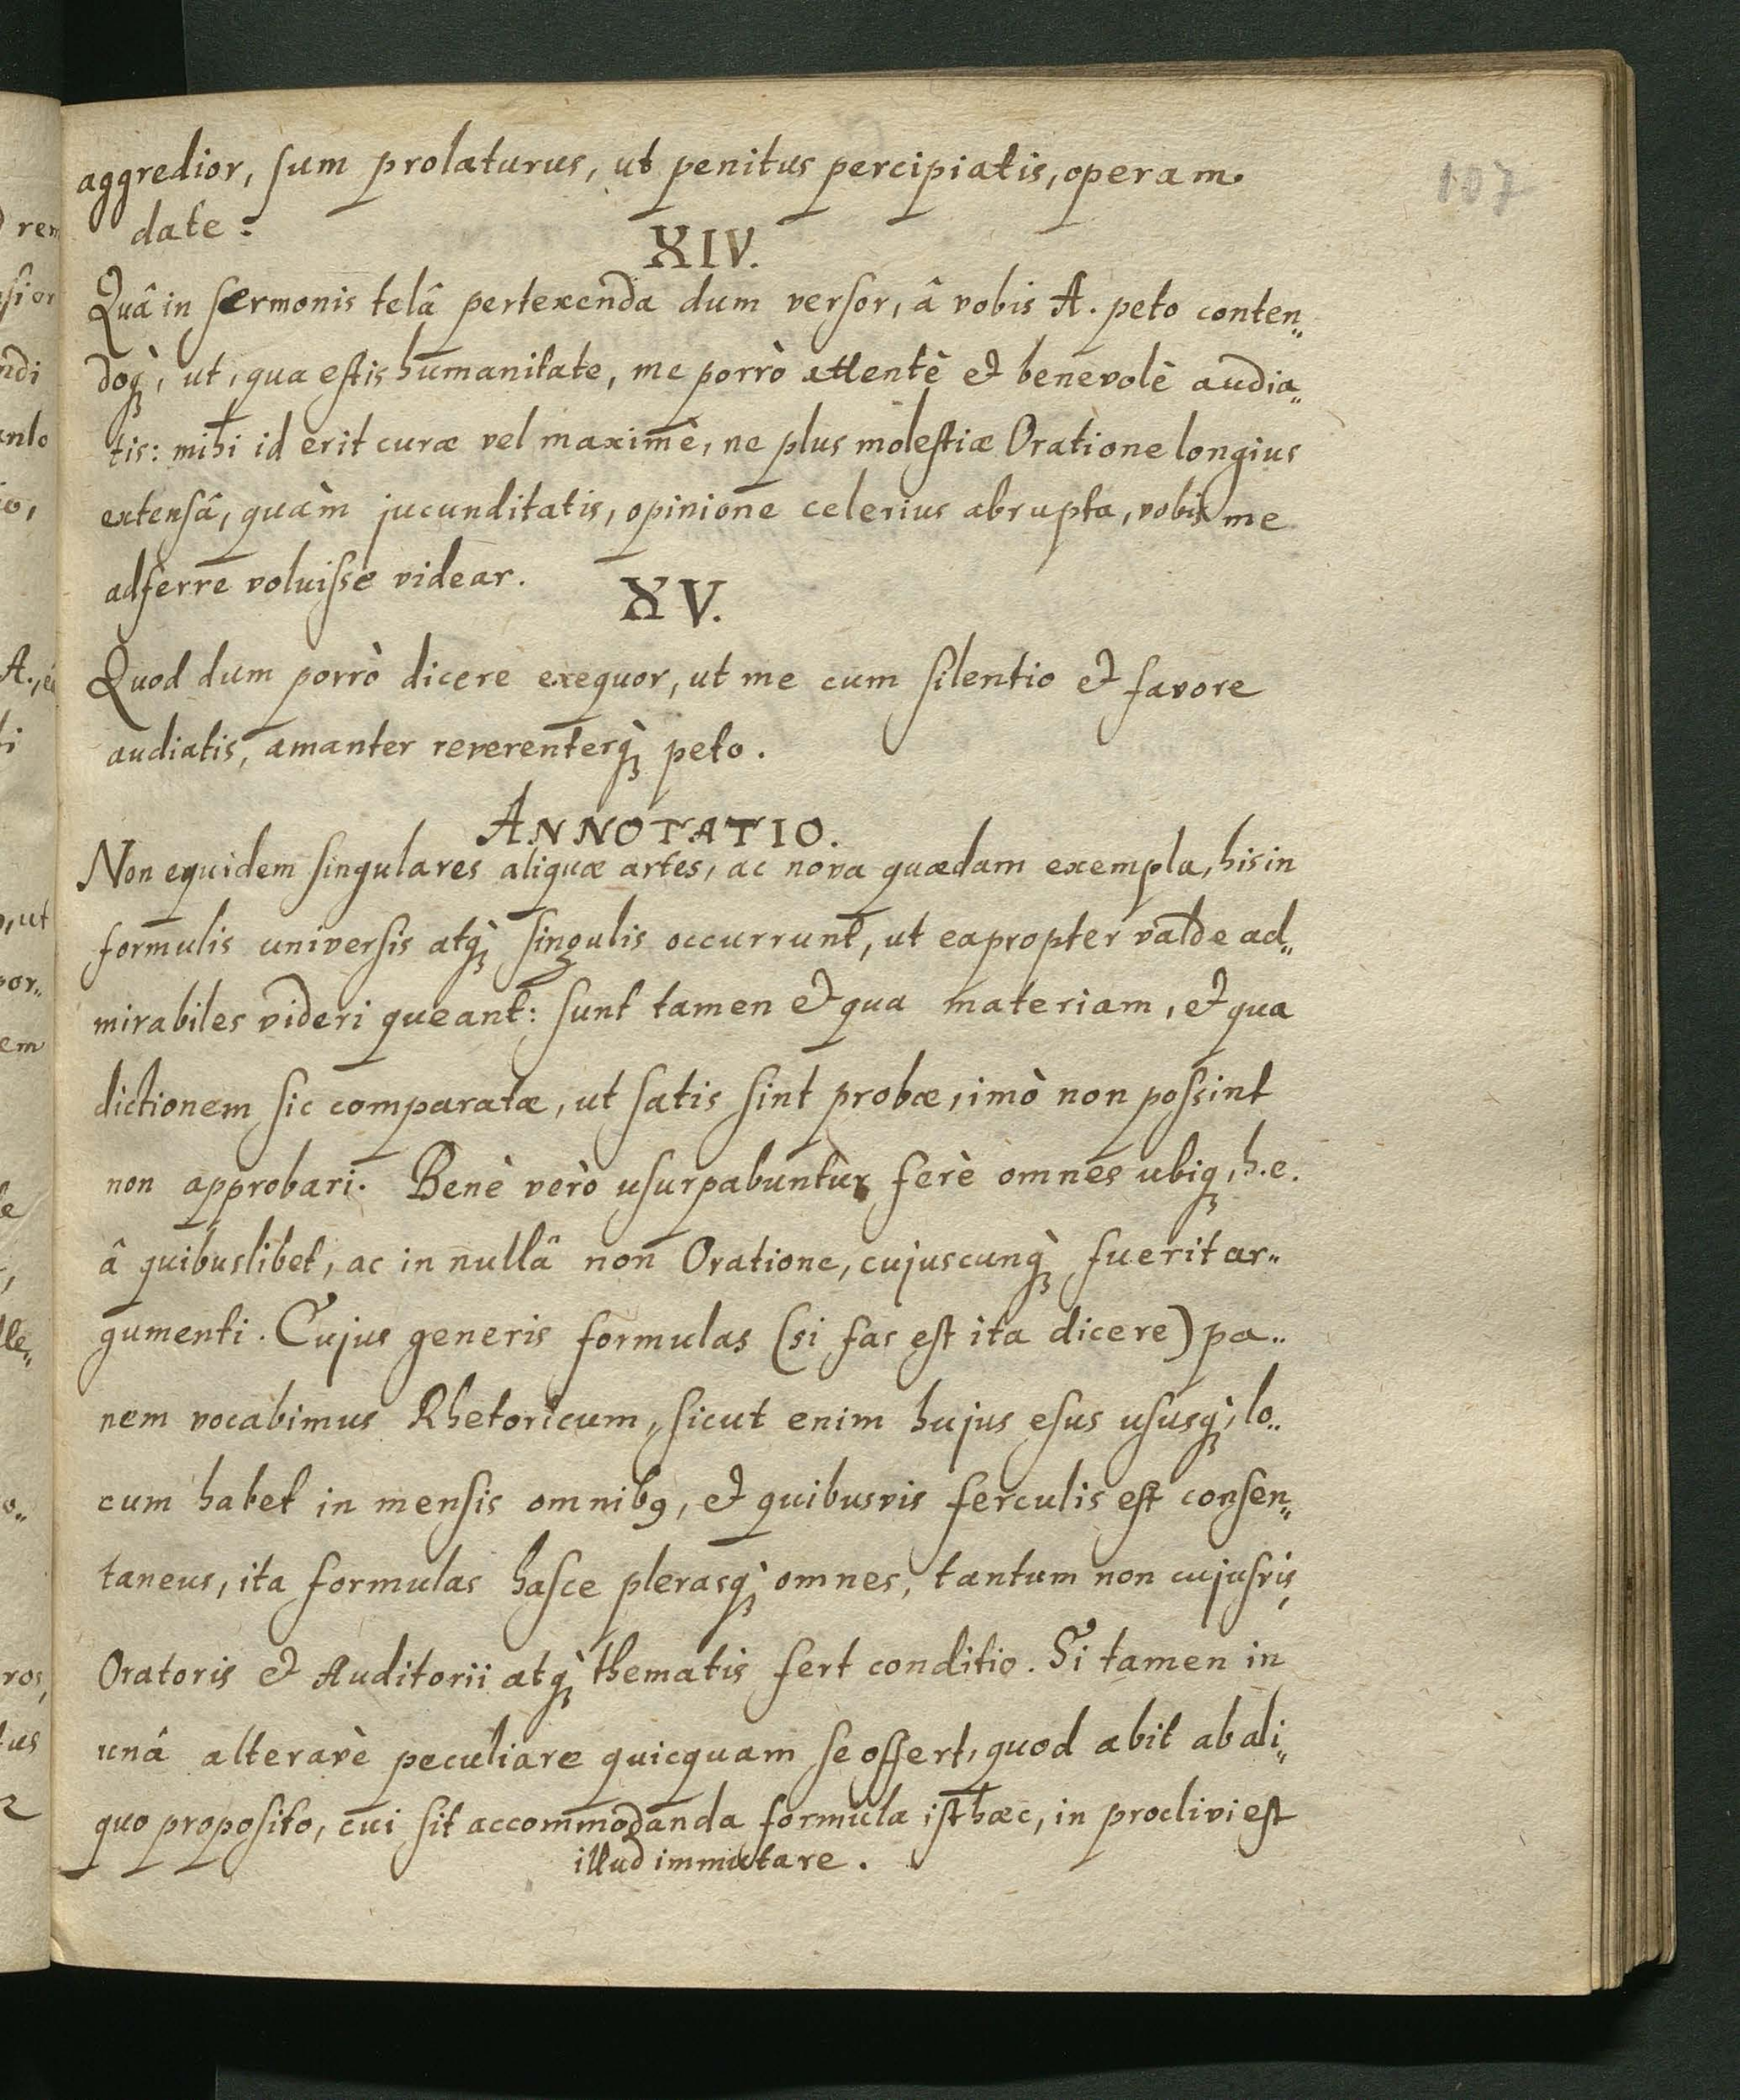 107
aggredior, sum prolaturus, ut penitus percipiatis, operam
date:
XIV.
Quâ in sermonis telâ pertexenda dum versor, â vobis A. peto conten„
doq́ꝫ, ut, qua estis humanitate, me porrò attentè et benevolè audia„
tis: mihi id erit curæ vel maximè, ne plus molestiæ Oratione longius
extensâ, quàm jucunditatis, opinione celerius abrupta, vobis me
adferre voluisse videar.
XV.
Quod dum porrò dicere exequor, ut me cum silentio et favore
audiatis, amanter reverenterq̀ꝫ peto.
ANNOTATIO.
Non equidem singulares aliquæ artes, ac nova quædam exempla, his in
formulis universis atq̀ꝫ singulis occurrunt, ut eapropter valde ad„
mirabiles videri queant: sunt tamen et qua materiam, et qua
dictionem sic comparatæ, ut satis sint probæ, imò non possint
non approbari. Benè verò usurpabuntur ferè omnes ubiqꝫ, h.e.
â quibuslibet, ac in nullâ non Oratione, cujuscunq̀ꝫ fuerit ar„
gumenti. Cujus generis formulas (si fas est ita dicere) pa„
nem vocabimus Rhetoricum, sicut enim hujus esus ususq̀ꝫ, lo„
cum habet in mensis omnibꝰ, et quibusvis ferculis est consen„
taneus, ita formulas hasce plerasq̀ꝫ omnes, tantum non cujusvis
Oratoris et Auditorii atq̀ꝫ thematis fert conditio. Si tamen in
unâ alteravè peculiare quicquam se offert, quod abit ab ali„
quo proposito, cui sit accommodanda formula isthæc, in proclivi est
illud immutare.